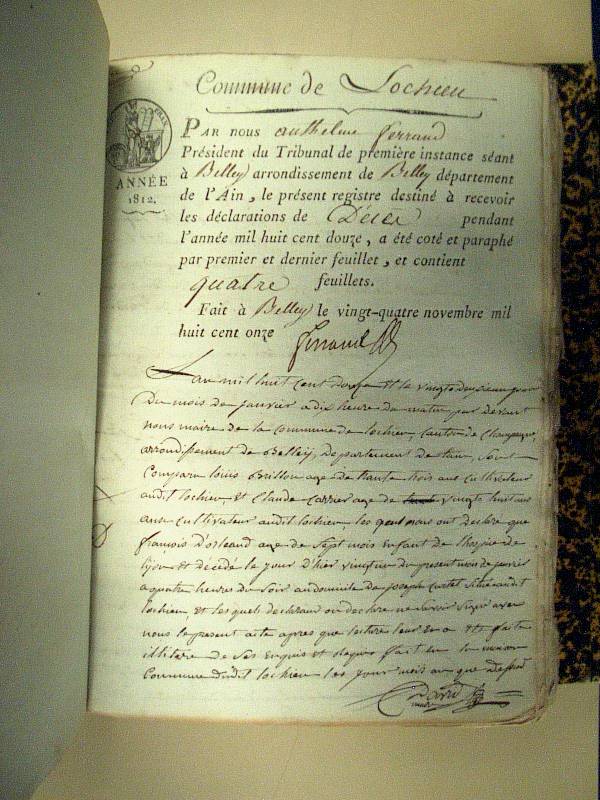 Commune de Lochieu
PAR nous anthelme ferrand
Président du Tribunal de première instance séant
à Belley arrondissement de Belley département
de l'Ain, le présent registre destiné à recevoir
les déclarations de Décès pendant
l'année mil huit cent douze, a été coté et paraphé
par premier et dernier feuillet, et contient
quatre feuillets.
Fait à Belley le vingt-quatre novembre mil
huit cent onze
ferrand
ANNÉE
1812.
L'an mil huit cent douze et le vingt deuxieme jour
Du mois de janvier a dix heure du matin par devant
nous maire de la commune de lochieu, canton de Champagne,
arrondissement de Belley, departement de l'ain, sont
Comparu louis Brillon age de trante trois ans cultivateur
audit lochieu et Claude Carrier age de vingt huit ans
ans cultivateur audit lochieu, les quels nous ont declare que
françois D'orleand age de sept mois enfant de l'hospice de
lyon et décédé le jour d'hier vingt un du present mois de janvier
a quatre heures du soir au domicile de joseph Cartet situé audit
lochieu et les quels declarant ont declare ne savoir signer avec
nous le present acte apres que lecture leur en a été faite
illitere de ses enquis et requis fait en la maison
Commune dudit lochieu les jour mois an que Dessus
maire